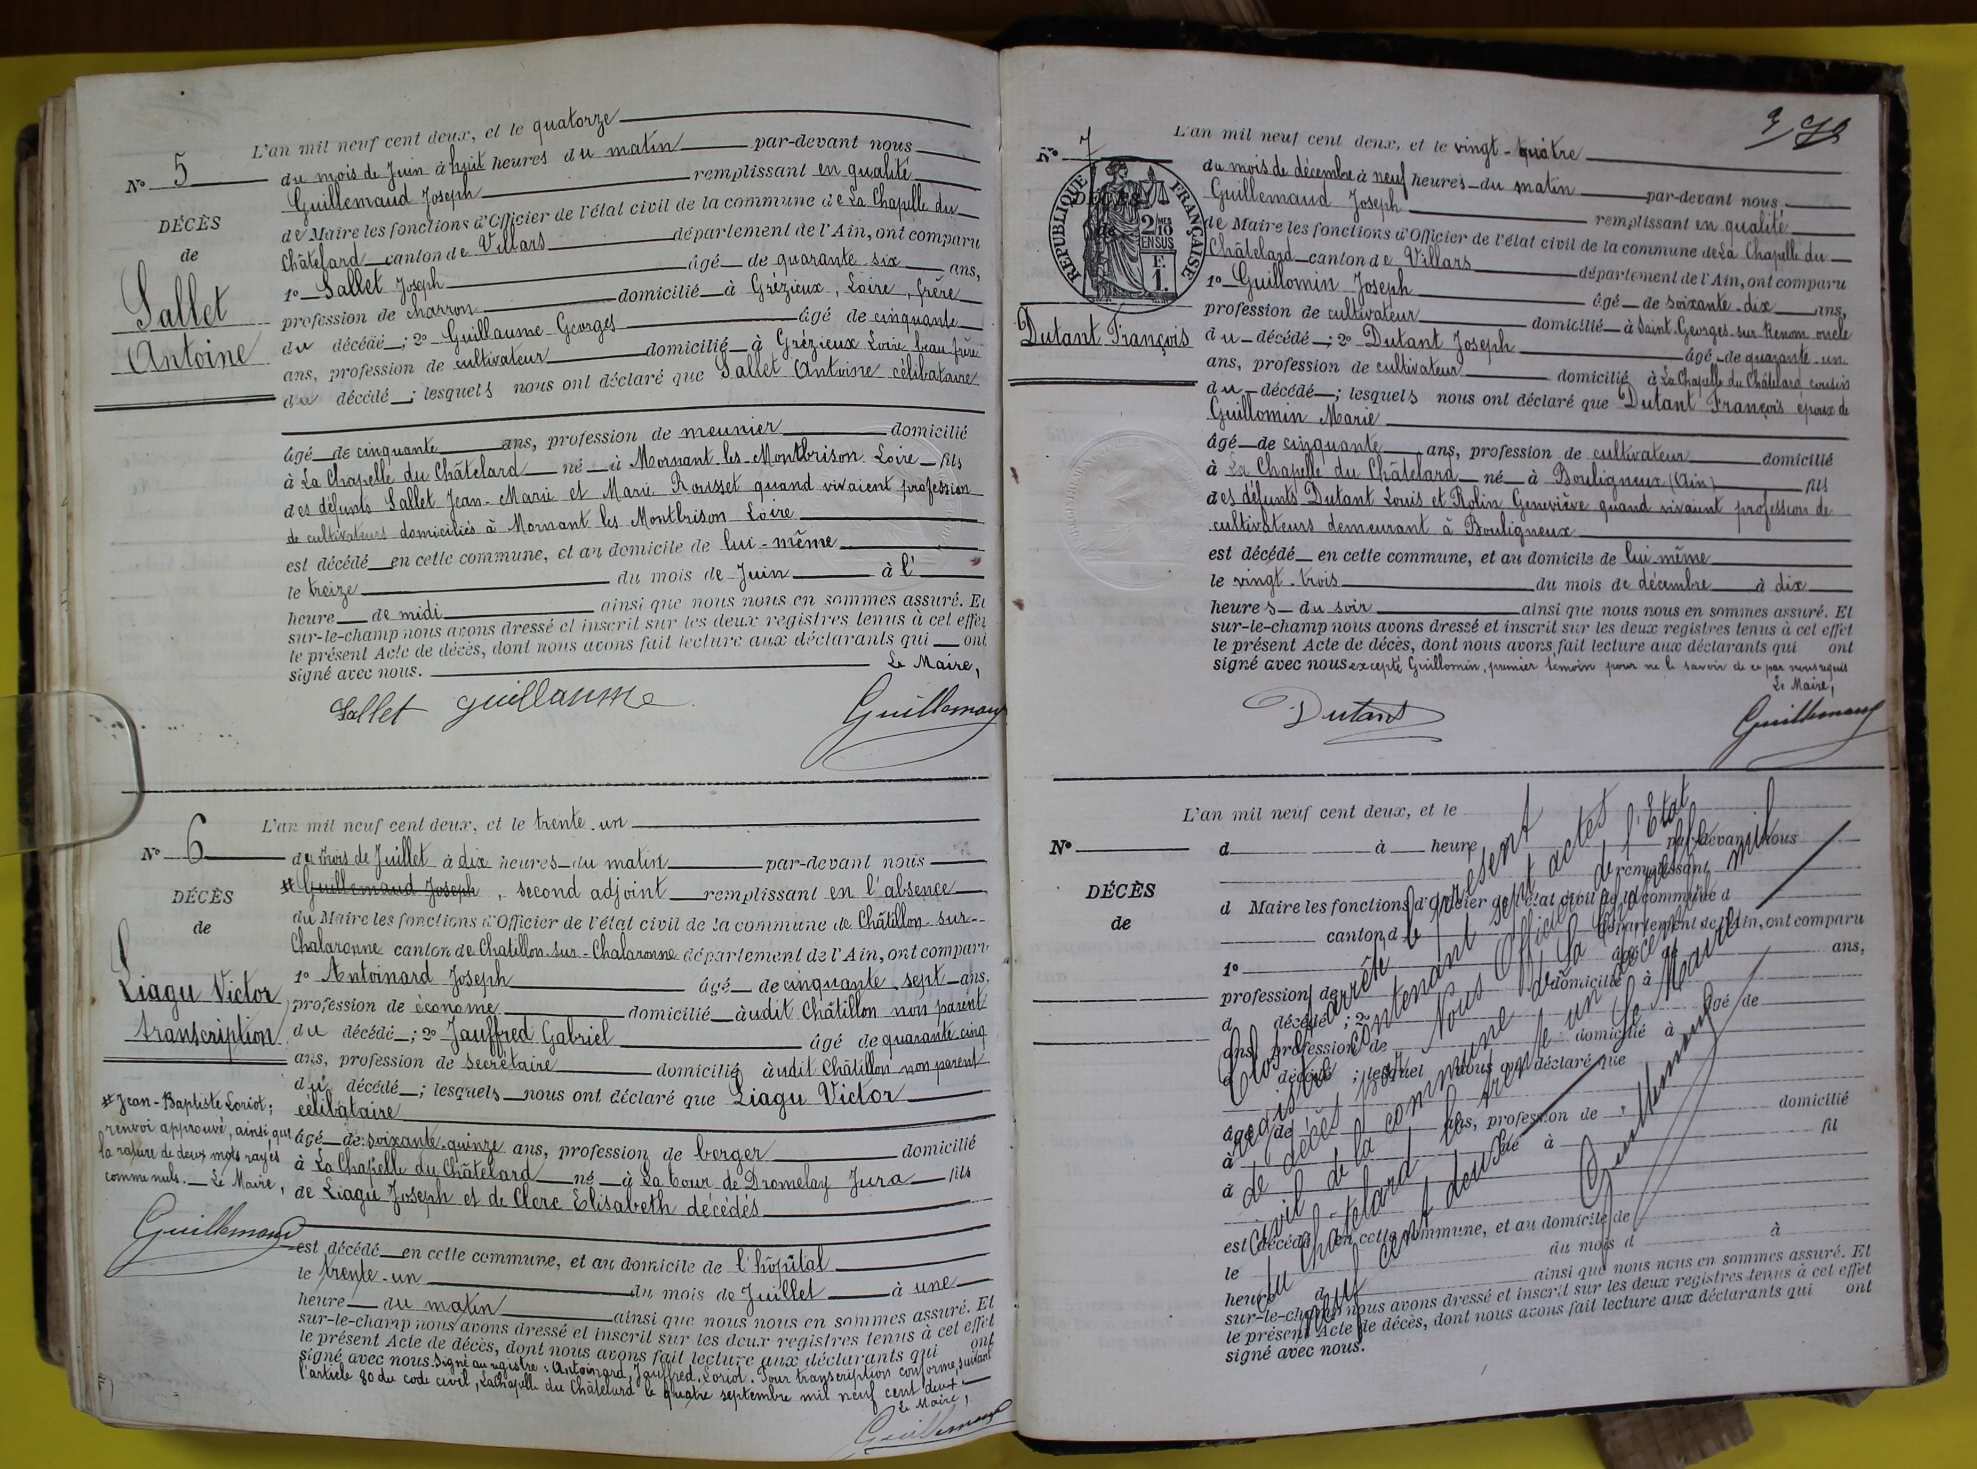 L'an mil neuf cent deux, et le quatorze
du mois de Juin à huit heures du matin par-devant nous
Guillemaud Joseph remplissant en qualité
de Maire les fonctions d'Officier de l'état civil de la commune de La Chapelle du
Châtelard canton de Villars département de l'Ain, ont comparu
1º Sallet Joseph âgé de quarante six ans,
profession de charron domicilié à Grézieux, Loire, frère
du décédé ; 2º Guillaume Georges âgé de cinquante
ans, profession de cultivateur domicilié à Grézieux Loire beau frère
du décédé ; lesquels nous ont déclaré que Sallet Antoine célibataire
âgé de cinquante ans, profession de meunier domicilié
à La Chapelle du Châtelard né à Mornant-les-Montbrison Loire fils
des défunts Sallet Jean-Marie et Marie Rousset quand vivaient profession
de cultivateurs domiciliés à Mornant les Montbrison Loire
est décédé en cette commune, et au domicile de lui-même
le treize du mois de Juin à l'
heure de midi ainsi que nous nous en sommes assuré. Et
sur-le-champ nous avons dressé et inscrit sur les deux registres tenus à cet effet
le présent Acte de décès, dont nous avons fait lecture aux déclarants qui ont
signé avec nous. Le Maire,
Sallet guillaume Guillemaud
Nº 5
DÉCÈS
de
Sallet
Antoine
L'an mil neuf cent deux, et le trente-un
du mois de Juillet à dix heures du matin par-devant nous
# Guillemaud Joseph, second adjoint remplissant en l'absence
du Maire les fonctions d'Officier de l'état civil de la commune de Châtillon-sur-
Chalaronne canton de Chatillon-sur-Chalaronne département de l'Ain, ont comparu
1º Antoinard Joseph âgé de cinquante-sept ans,
profession de économe domicilié audit Châtillon non parent
du décédé ; 2º Jauffred Gabriel âgé de quarante cinq
ans, profession de secrétaire domicilié audit Châtillon non parent
du décédé ; lesquels nous ont déclaré que Liagu Victor
célibataire
âgé de soixante-quinze ans, profession de berger domicilié
à La Chapelle du Châtelard né à La Tour de Dromelay Jura fils
de Liagu Joseph et de Clerc Elisabeth décédés
est décédé en cette commune, et au domicile de l'hôpital
le trente-un du mois de Juillet à une
heure du matin ainsi que nous nous en sommes assuré. Et
sur-le-champ nous avons dressé et inscrit sur les deux registres tenus à cet effet
le présent Acte de décès, dont nous avons fait lecture aux déclarants qui ont
signé avec nous. Signé au registre : Antoinard, Jauffred, Loriot. Pour transcription conforme, suivant
l'article 80 du code civil, Lachapelle du Châtelard le quatre septembre mil neuf cent deux
Le Maire,
Guillemaud
Nº 6
DÉCÈS
de
Liagu Victor
transcription
# Jean-Baptiste Loriot;
renvoi approuvé, ainsi que
la rature de deux mots rayés
comme nuls. Le Maire,
Guillemaud
L'an mil neuf cent deux, et le vingt-quatre
du mois de décembre à neuf heures du matin par-devant nous
Guillemaud Joseph remplissant en qualité
de Maire les fonctions d'Officier de l'état civil de la commune de La Chapelle du
Châtelard canton de Villars département de l'Ain, ont comparu
1º Guillomin Joseph âgé de soixante-dix ans,
profession de cultivateur domicilié à Saint-Georges-sur-Renom oncle
du décédé ; 2º Dutant Joseph âgé de quarante-un
ans, profession de cultivateur domicilié à La Chapelle du Châtelard cousin
du décédé ; lesquels nous ont déclaré que Dutant François époux de
Guillomin Marie
âgé de cinquante ans, profession de cultivateur domicilié
à La Chapelle du Châtelard né à Bouligneux (Ain) fils
des défunts Dutant Louis et Rolin Geneviève quand vivaient profession de
cultivateurs demeurant à Bouligneux
est décédé en cette commune, et au domicile de lui-même
le vingt-trois du mois de décembre à dix
heures du soir ainsi que nous nous en sommes assuré. Et
sur-le-champ nous avons dressé et inscrit sur les deux registres tenus à cet effet
le présent Acte de décès, dont nous avons fait lecture aux déclarants qui ont
signé avec nous excepté Guillomin, premier témoin pour ne le savoir de ce par nous requis
Le Maire,
Dutant Guillemaud
Nº 7
RÉPUBLIQUE FRANÇAISE
DÉCÈS
de
2/10
EN SUS
F.
1.
Dutant François
L'an mil neuf cent deux, et le
d à heure par-devant nous
remplissant
d Maire les fonctions d'Officier de l'état civil de la commune d
canton d département de l'Ain, ont comparu
1º âgé de ans,
profession de domicilié à
d décédé ; 2º âgé de
ans, profession de domicilié à
d décédé ; lesquel nous ont déclaré que
âgé de ans, profession de domicilié
à né à fil
d
est décédé en cette commune, et au domicile de
le du mois d à
heure d ainsi que nous nous en sommes assuré. Et
sur-le-champ nous avons dressé et inscrit sur les deux registres tenus à cet effet
le présent Acte de décès, dont nous avons fait lecture aux déclarants qui ont
signé avec nous.
Nº
DÉCÈS
de
Clos et arrêté le présent
registre contenant sept actes
de décès par Nous Officier de l'État
Civil de la commune de La Chapelle
du Châtelard le trente un décembre mil
neuf cent deux
Le Maire
Guillemaud